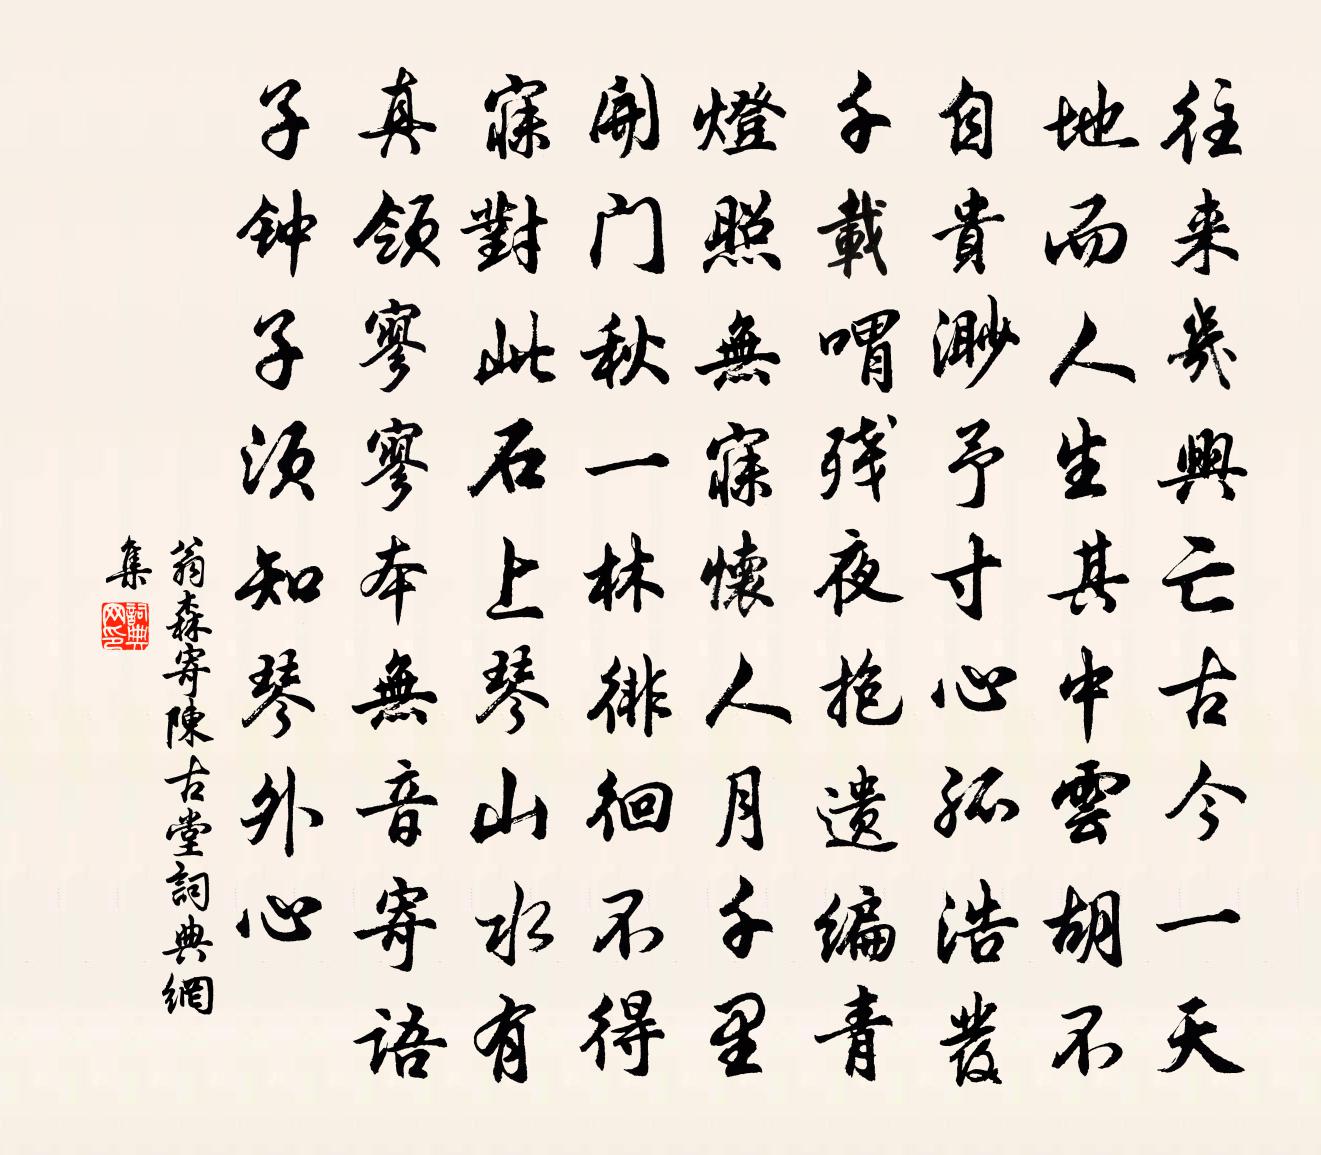 往来幾興亡古今一天
地而人生其中雲胡不
自貴渺予寸心孤浩發
千載喟残夜抱遗编青
燈照無寐懷人月千里
開门秋一林徘徊不得
寐對此石上琴山水有
真领寥寥本無音寄语
子钟子须知琴外心
翁森寄陳古堂詞典網
集
詞典网印